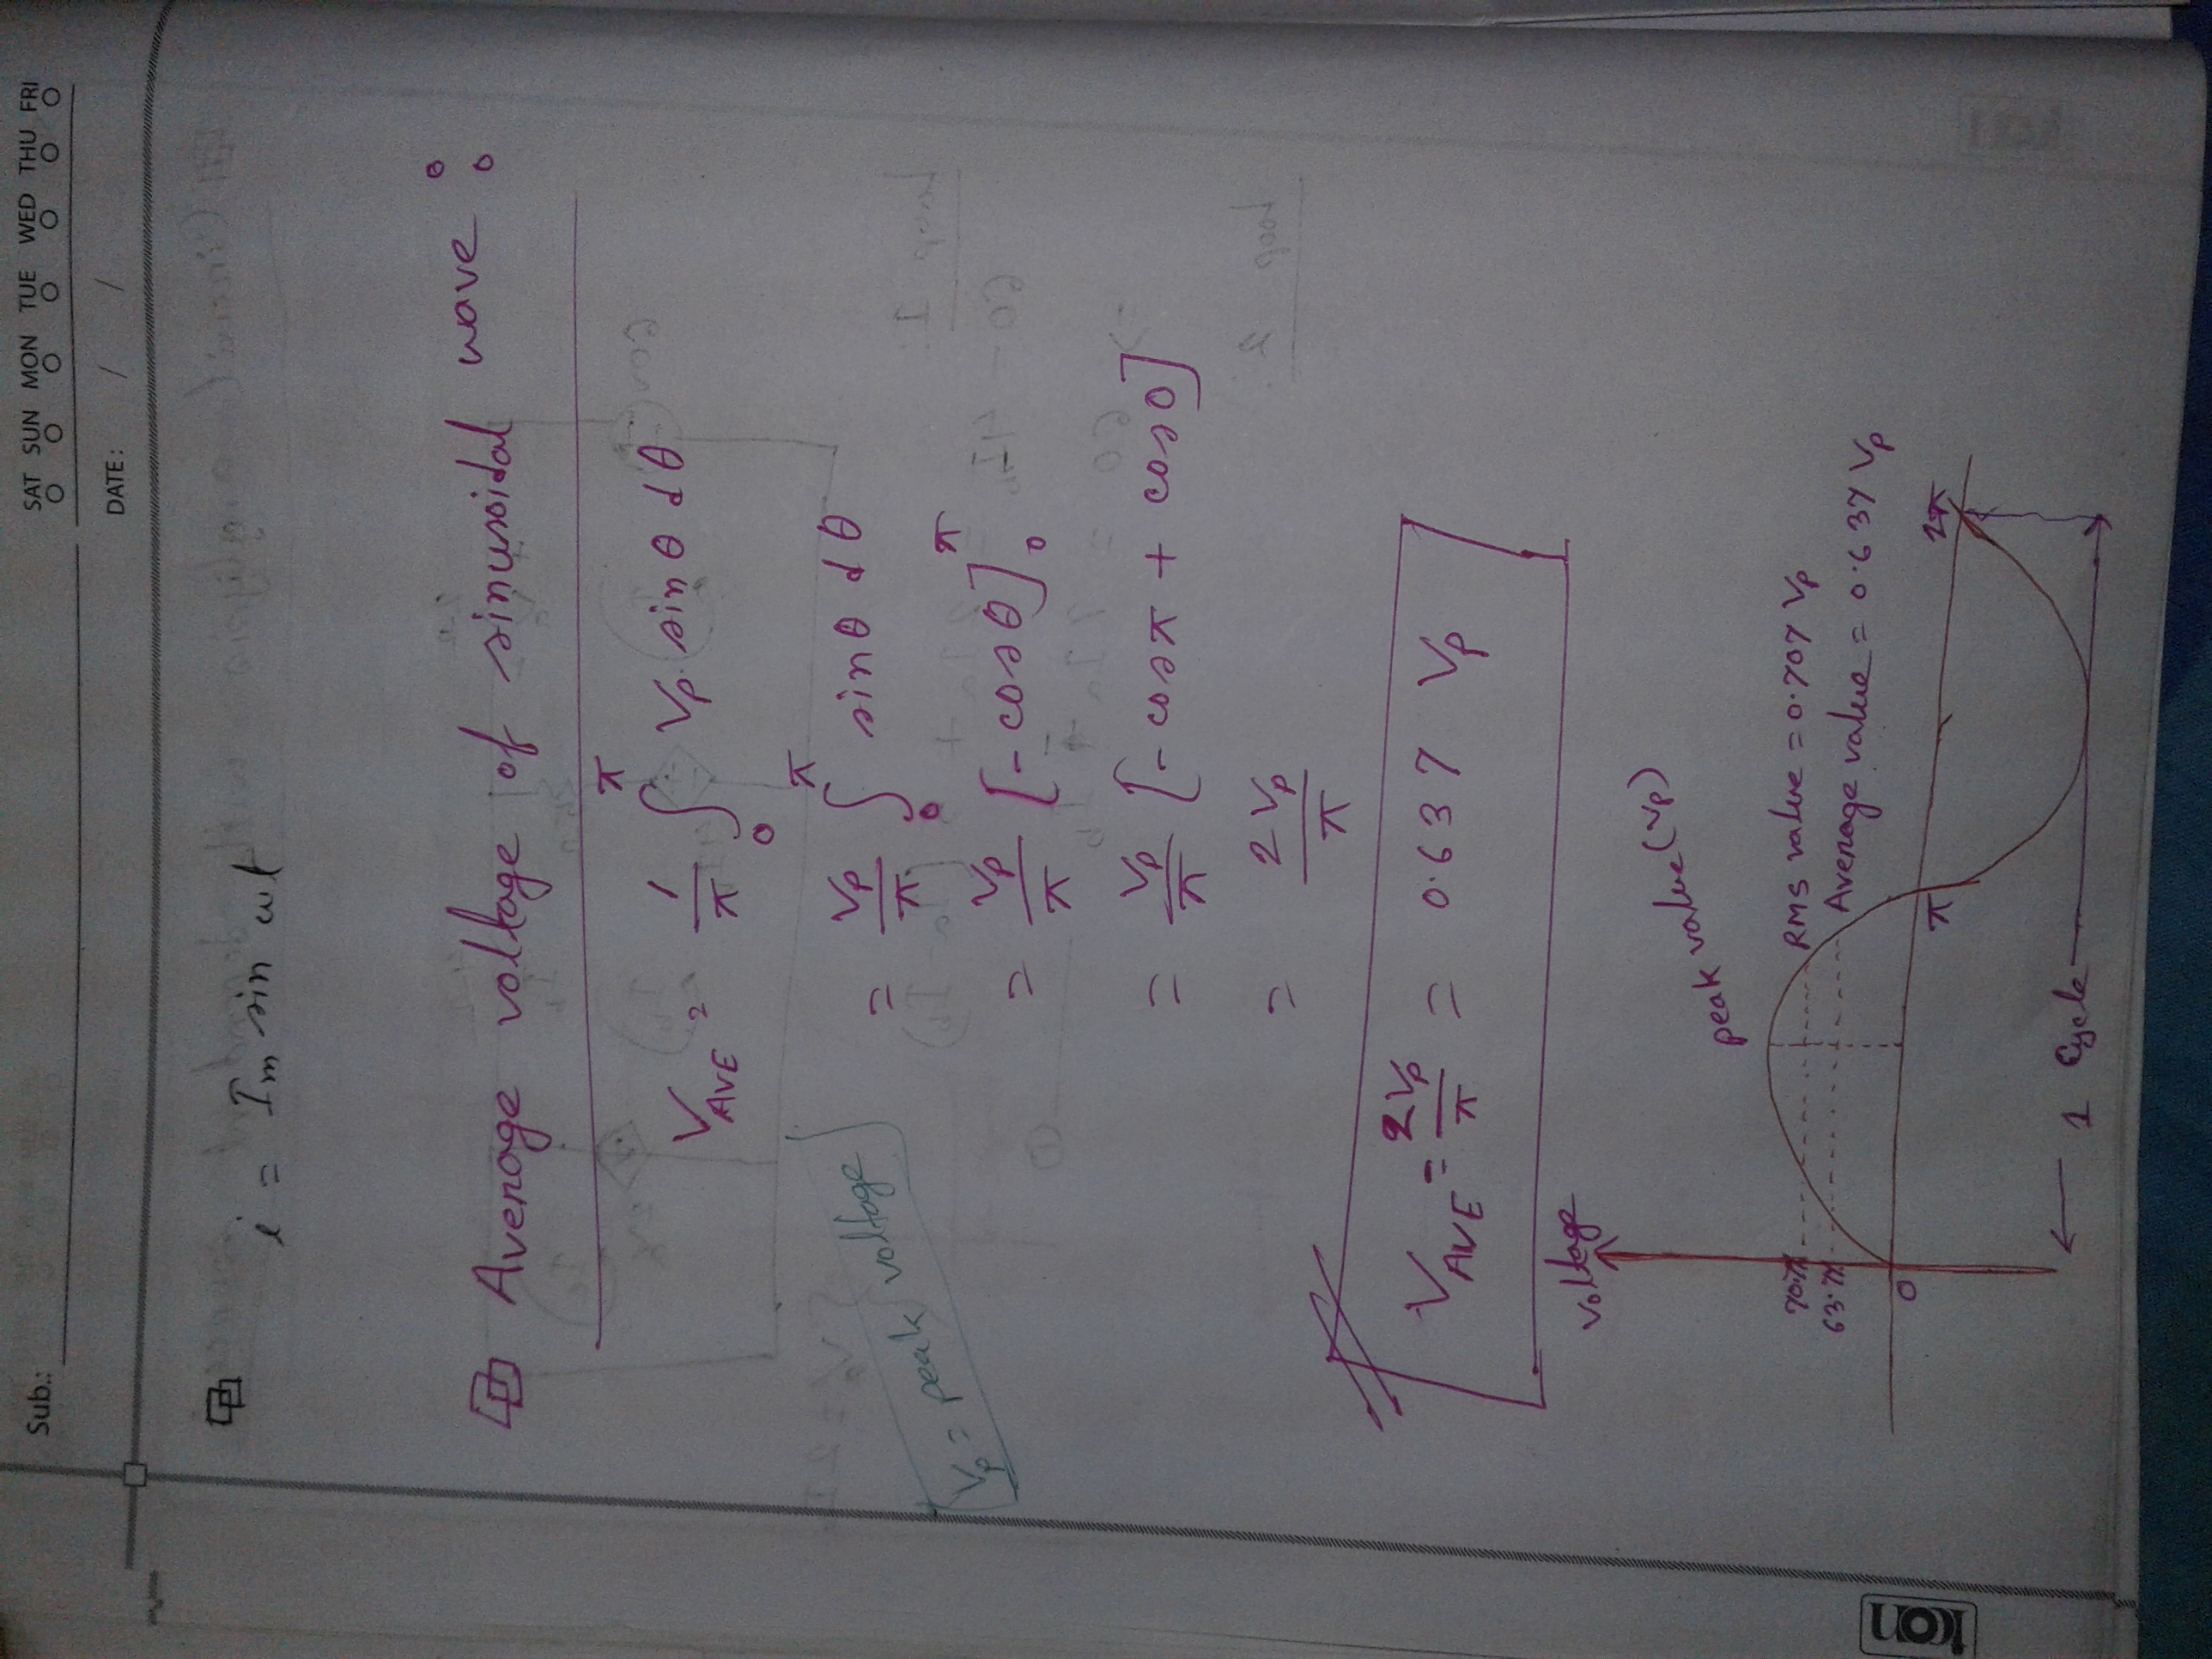 Sub.:
SAT SUN MON TUE WED THU FRI
DATE: / /
i = Im sin ωt
Average voltage of sinusoidal wave :
V_AVE = 1/π ∫₀^π Vp sinθ dθ
Vp = peak voltage
= Vp/π ∫₀^π sinθ dθ
= Vp/π [-cosθ]₀^π
= Vp/π [-cosπ + cos0]
= 2Vp/π
V_AVE = 2Vp/π = 0.637 Vp
voltage
peak value (Vp)
70.7% RMS value = 0.707 Vp
63.7% Average value = 0.637 Vp
0
π
2π
1 Cycle
icon